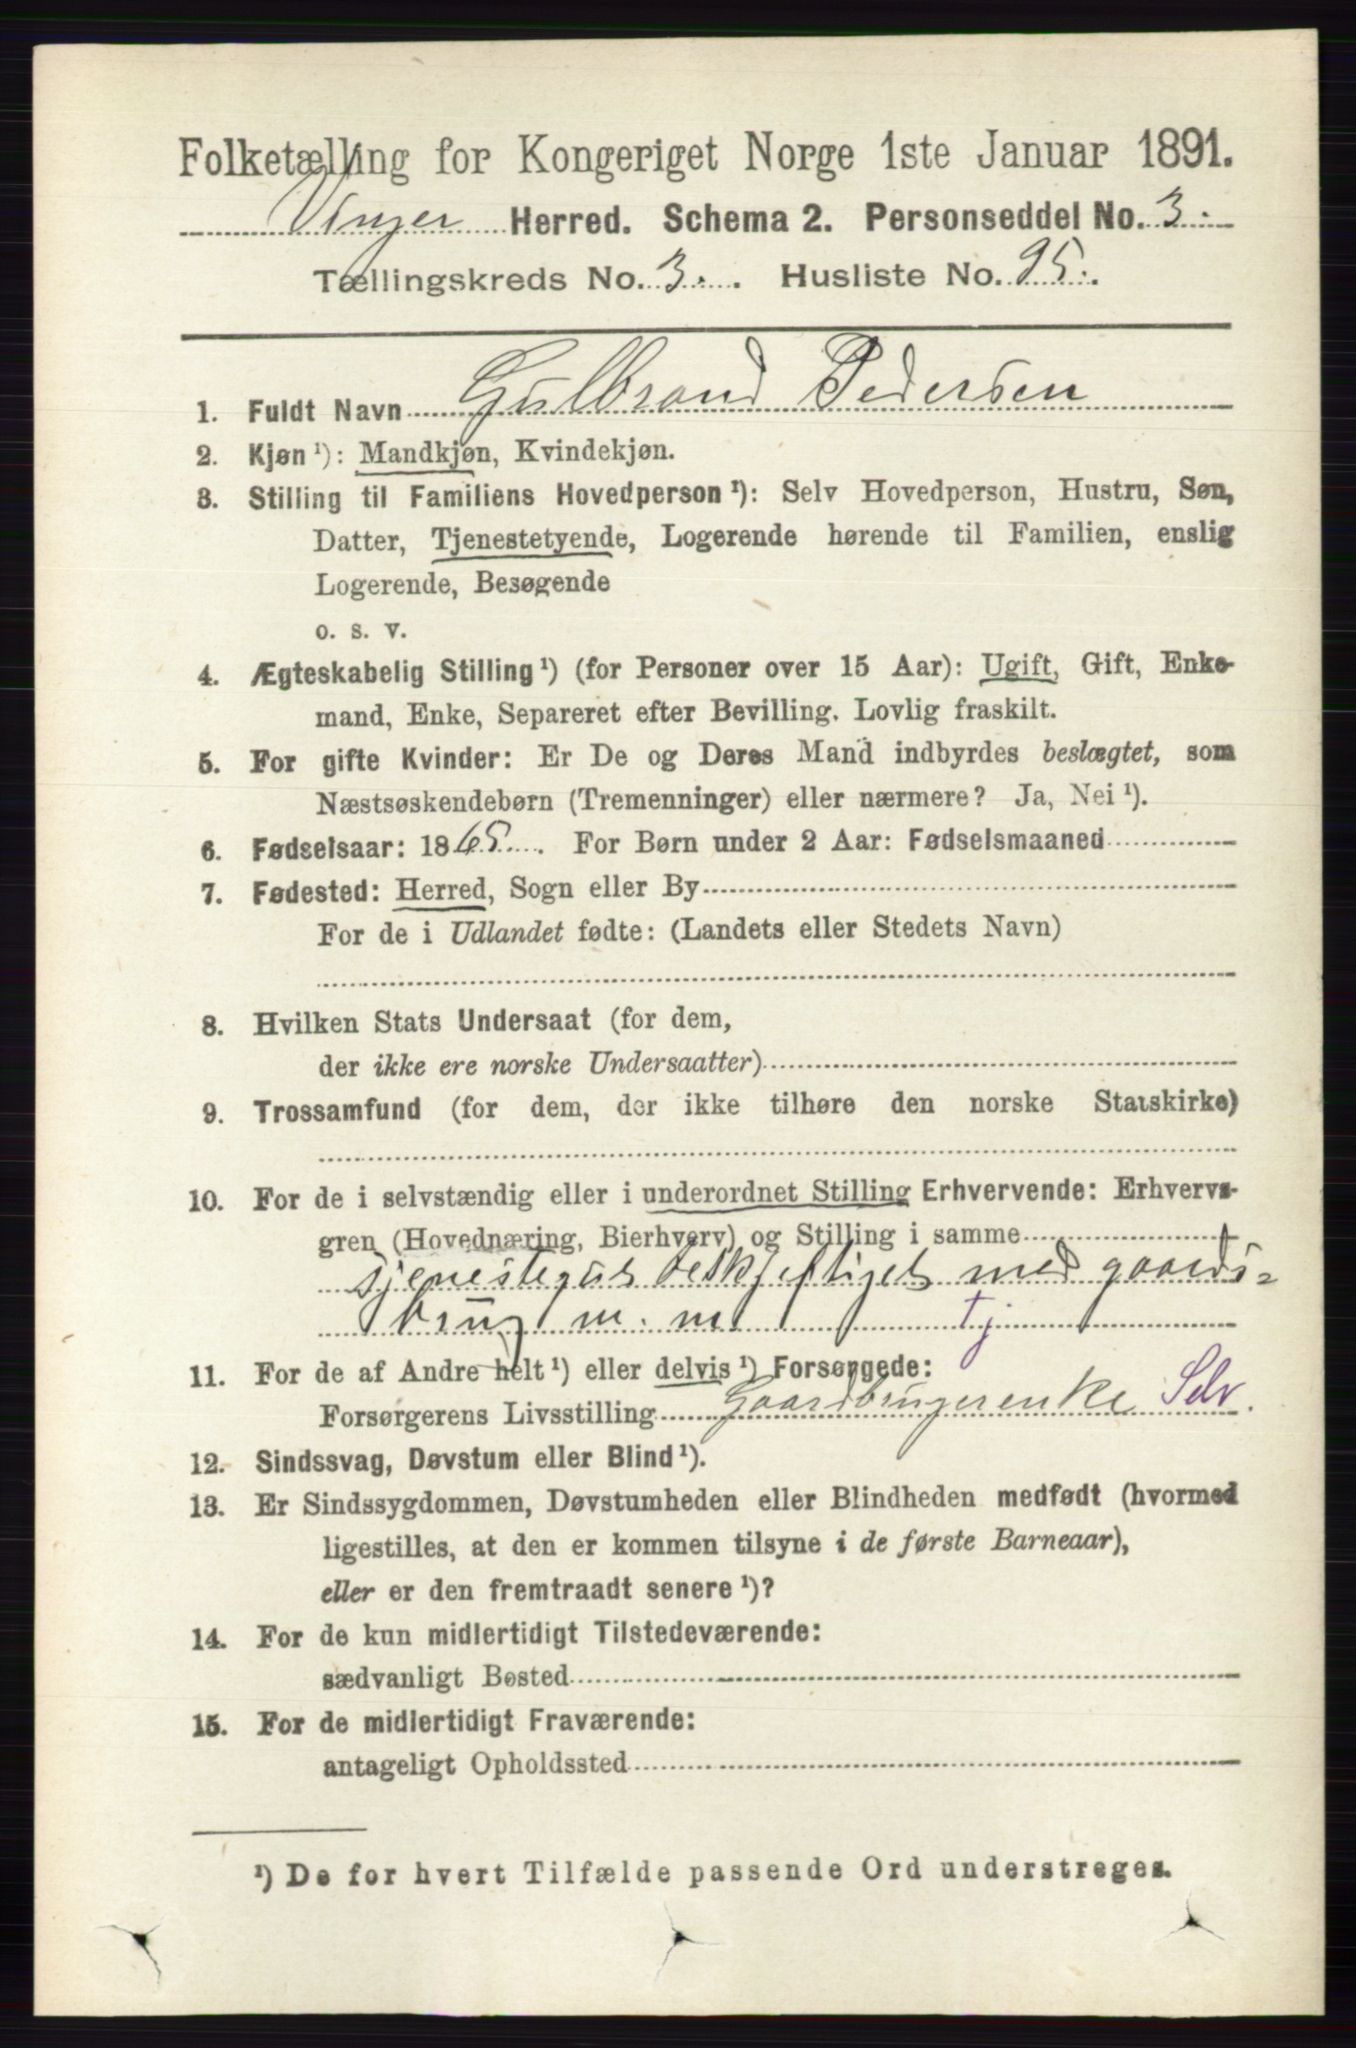 Folketælling for Kongeriget Norge 1ste Januar 1891.
Vinger Herred. Schema 2. Personseddel No. 3.
Tællingskreds No. 3. Husliste No. 95.
1. Fuldt Navn Gulbrand Pedersen
2. Kjøn ¹): Mandkjøn, Kvindekjøn.
3. Stilling til Familiens Hovedperson ¹): Selv Hovedperson, Hustru, Søn,
Datter, Tjenestetyende, Logerende hørende til Familien, enslig
Logerende, Besøgende
o. s. v.
4. Ægteskabelig Stilling ¹) (for Personer over 15 Aar): Ugift, Gift, Enke-
mand, Enke, Separeret efter Bevilling. Lovlig fraskilt.
5. For gifte Kvinder: Er De og Deres Mand indbyrdes beslægtet, som
Næstsøskendebørn (Tremenninger) eller nærmere? Ja, Nei ¹).
6. Fødselsaar: 1865. For Børn under 2 Aar: Fødselsmaaned
7. Fødested: Herred, Sogn eller By
For de i Udlandet fødte: (Landets eller Stedets Navn)
8. Hvilken Stats Undersaat (for dem,
der ikke ere norske Undersaatter)
9. Trossamfund (for dem, der ikke tilhøre den norske Statskirke)
10. For de i selvstændig eller i underordnet Stilling Erhvervende: Erhvervs-
gren (Hovednæring, Bierhverv) og Stilling i samme
tjenestegut beskjeftiget med gaards-
brug m. m tj
11. For de af Andre helt ¹) eller delvis ¹) Forsørgede:
Forsørgerens Livsstilling Gaardbrugerenke Selv.
12. Sindssvag, Døvstum eller Blind ¹).
13. Er Sindssygdommen, Døvstumheden eller Blindheden medfødt (hvormed
ligestilles, at den er kommen tilsyne i de første Barneaar),
eller er den fremtraadt senere ¹)?
14. For de kun midlertidigt Tilstedeværende:
sædvanligt Bosted
15. For de midlertidigt Fraværende:
antageligt Opholdssted
¹) De for hvert Tilfælde passende Ord understreges.